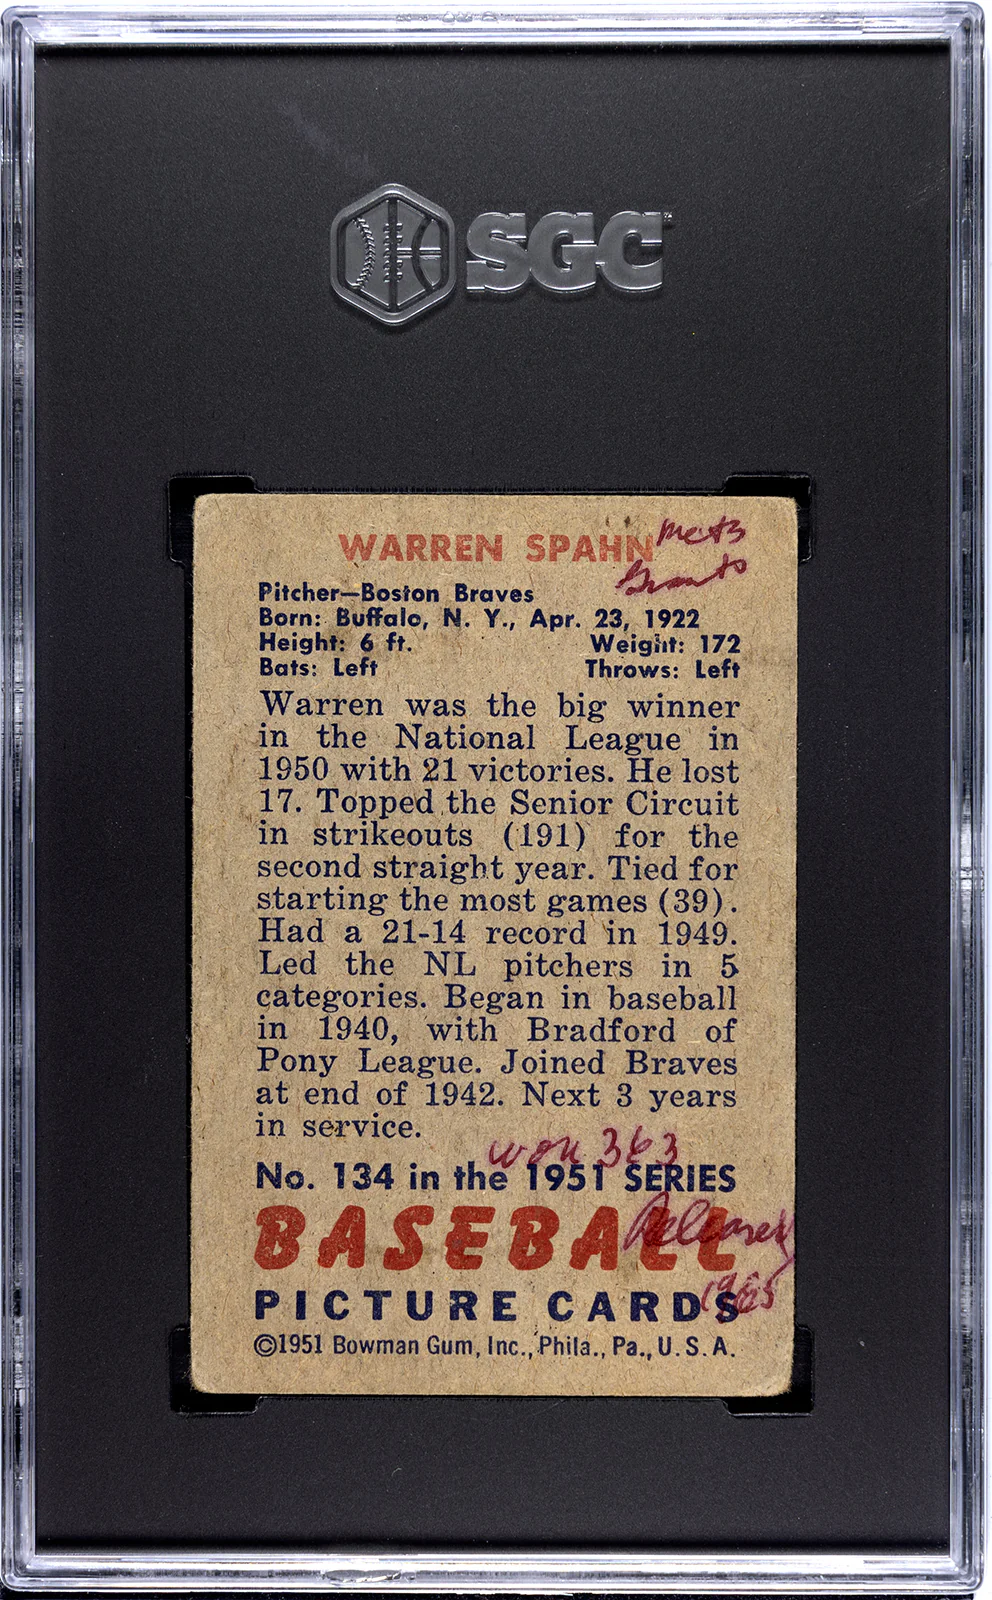 SGC
WARREN SPAHN
Mets
Giants
Pitcher—Boston Braves
Born: Buffalo, N. Y., Apr. 23, 1922
Height: 6 ft. Weight: 172
Bats: Left Throws: Left
Warren was the big winner
in the National League in
1950 with 21 victories. He lost
17. Topped the Senior Circuit
in strikeouts (191) for the
second straight year. Tied for
starting the most games (39).
Had a 21-14 record in 1949.
Led the NL pitchers in 5
categories. Began in baseball
in 1940, with Bradford of
Pony League. Joined Braves
at end of 1942. Next 3 years
in service.
won 363
No. 134 in the 1951 SERIES
BASEBALL
Released
PICTURE CARDS
1965
©1951 Bowman Gum, Inc., Phila., Pa., U.S.A.